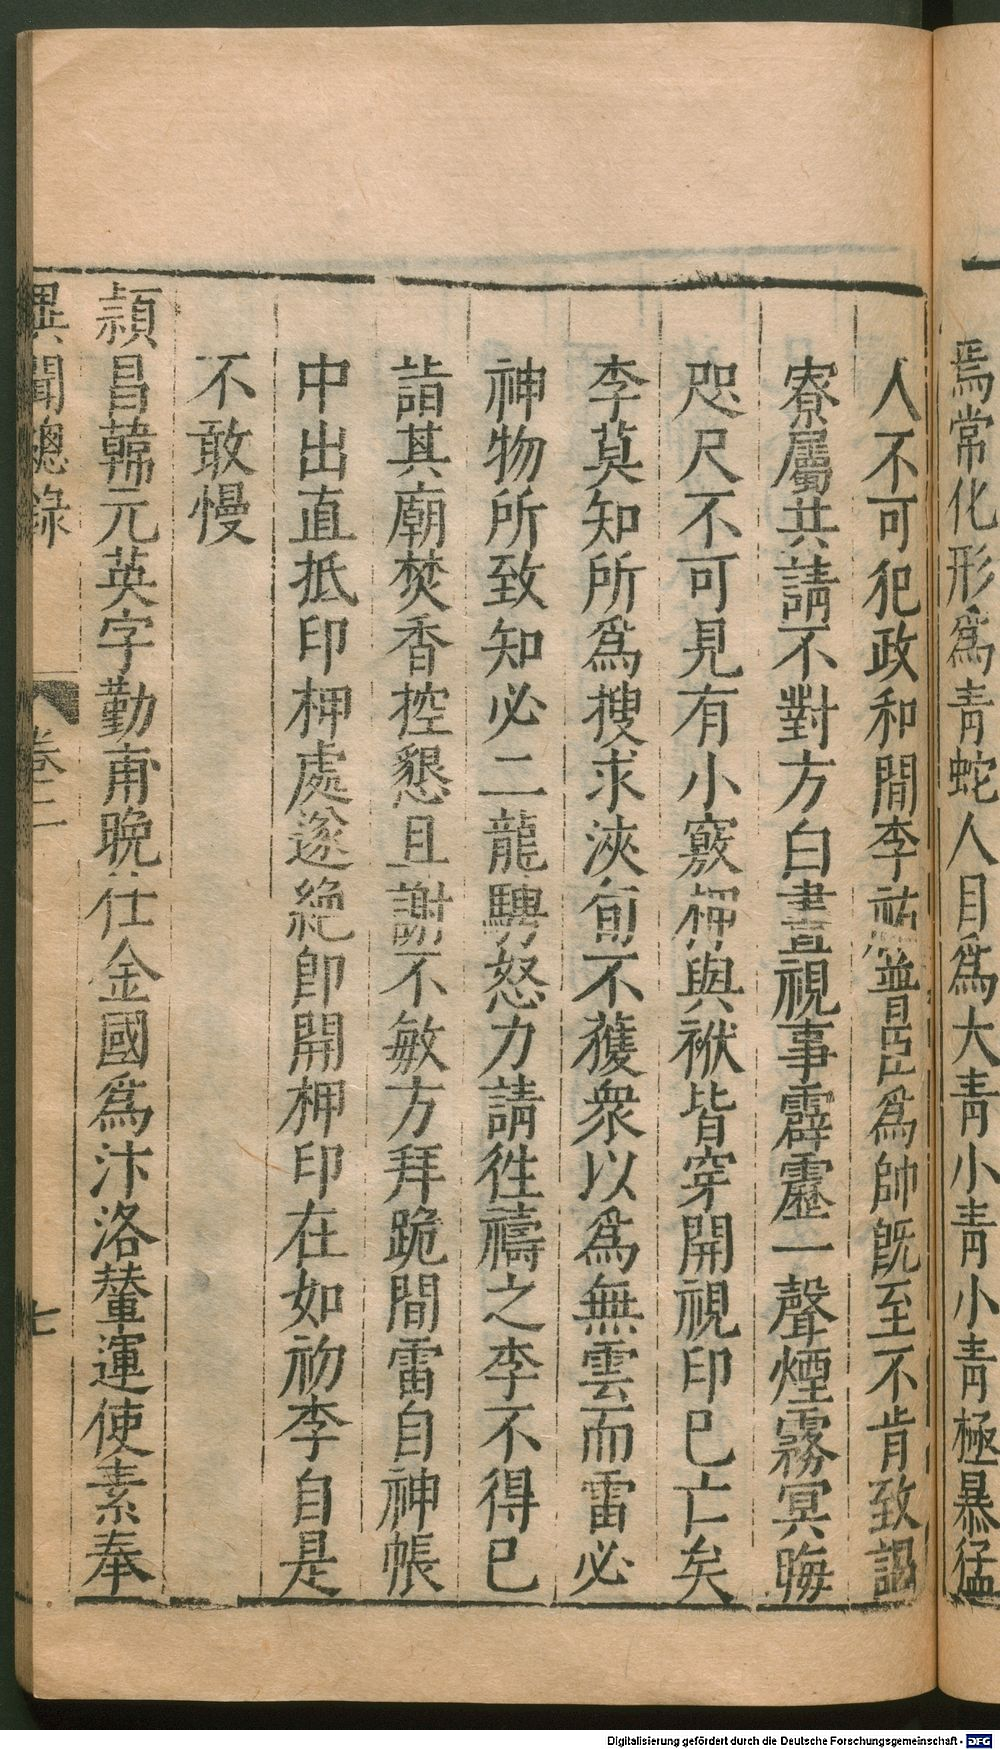 焉常化形爲靑蛇人目爲大靑小靑小靑極暴猛
人不可犯政和間李祐普臣爲帥旣至不肯致謁
寮屬共請不對方白晝視事霹靂一聲煙霧冥晦
咫尺不可見有小竅柙與袱皆穿開視印已亡矣
李莫知所爲搜求浹旬不獲衆以爲無雲而雷必
神物所致知必二龍騁怒力請徃禱之李不得已
詣其廟焚香控懇且謝不敏方拜跪間雷自神帳
中出直抵印柙處遂絶卽開柙印在如初李自是
不敢慢
頴昌韓元英字勤甫晩仕金國爲汴洛輦運使素奉
異聞總錄 卷二 七
Digitalisierung gefördert durch die Deutsche Forschungsgemeinschaft - DFG